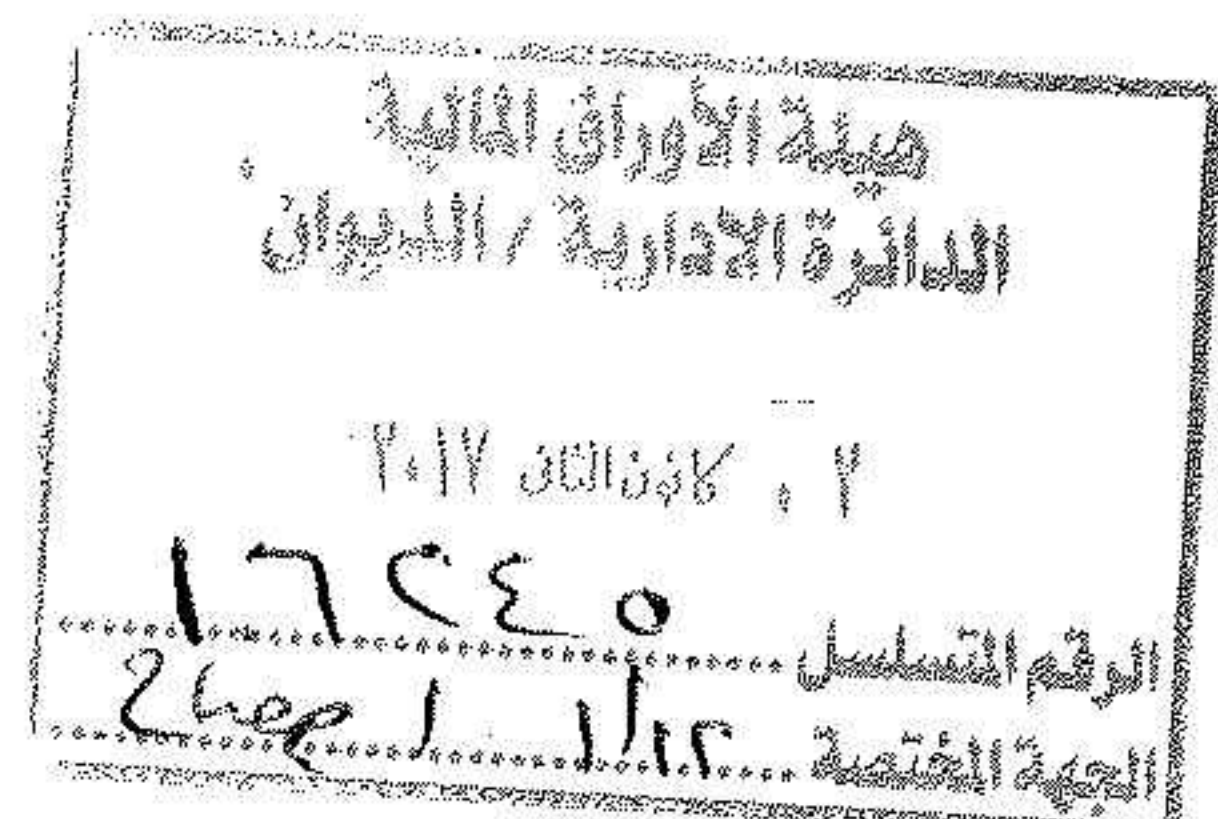 هيئة الأوراق المالية
الدائرة الادارية / الديوان
٢٠ كانون الثاني ٢٠١٧
١٦٢٤٥ الرقم المتسلسل
الجهة المختصة